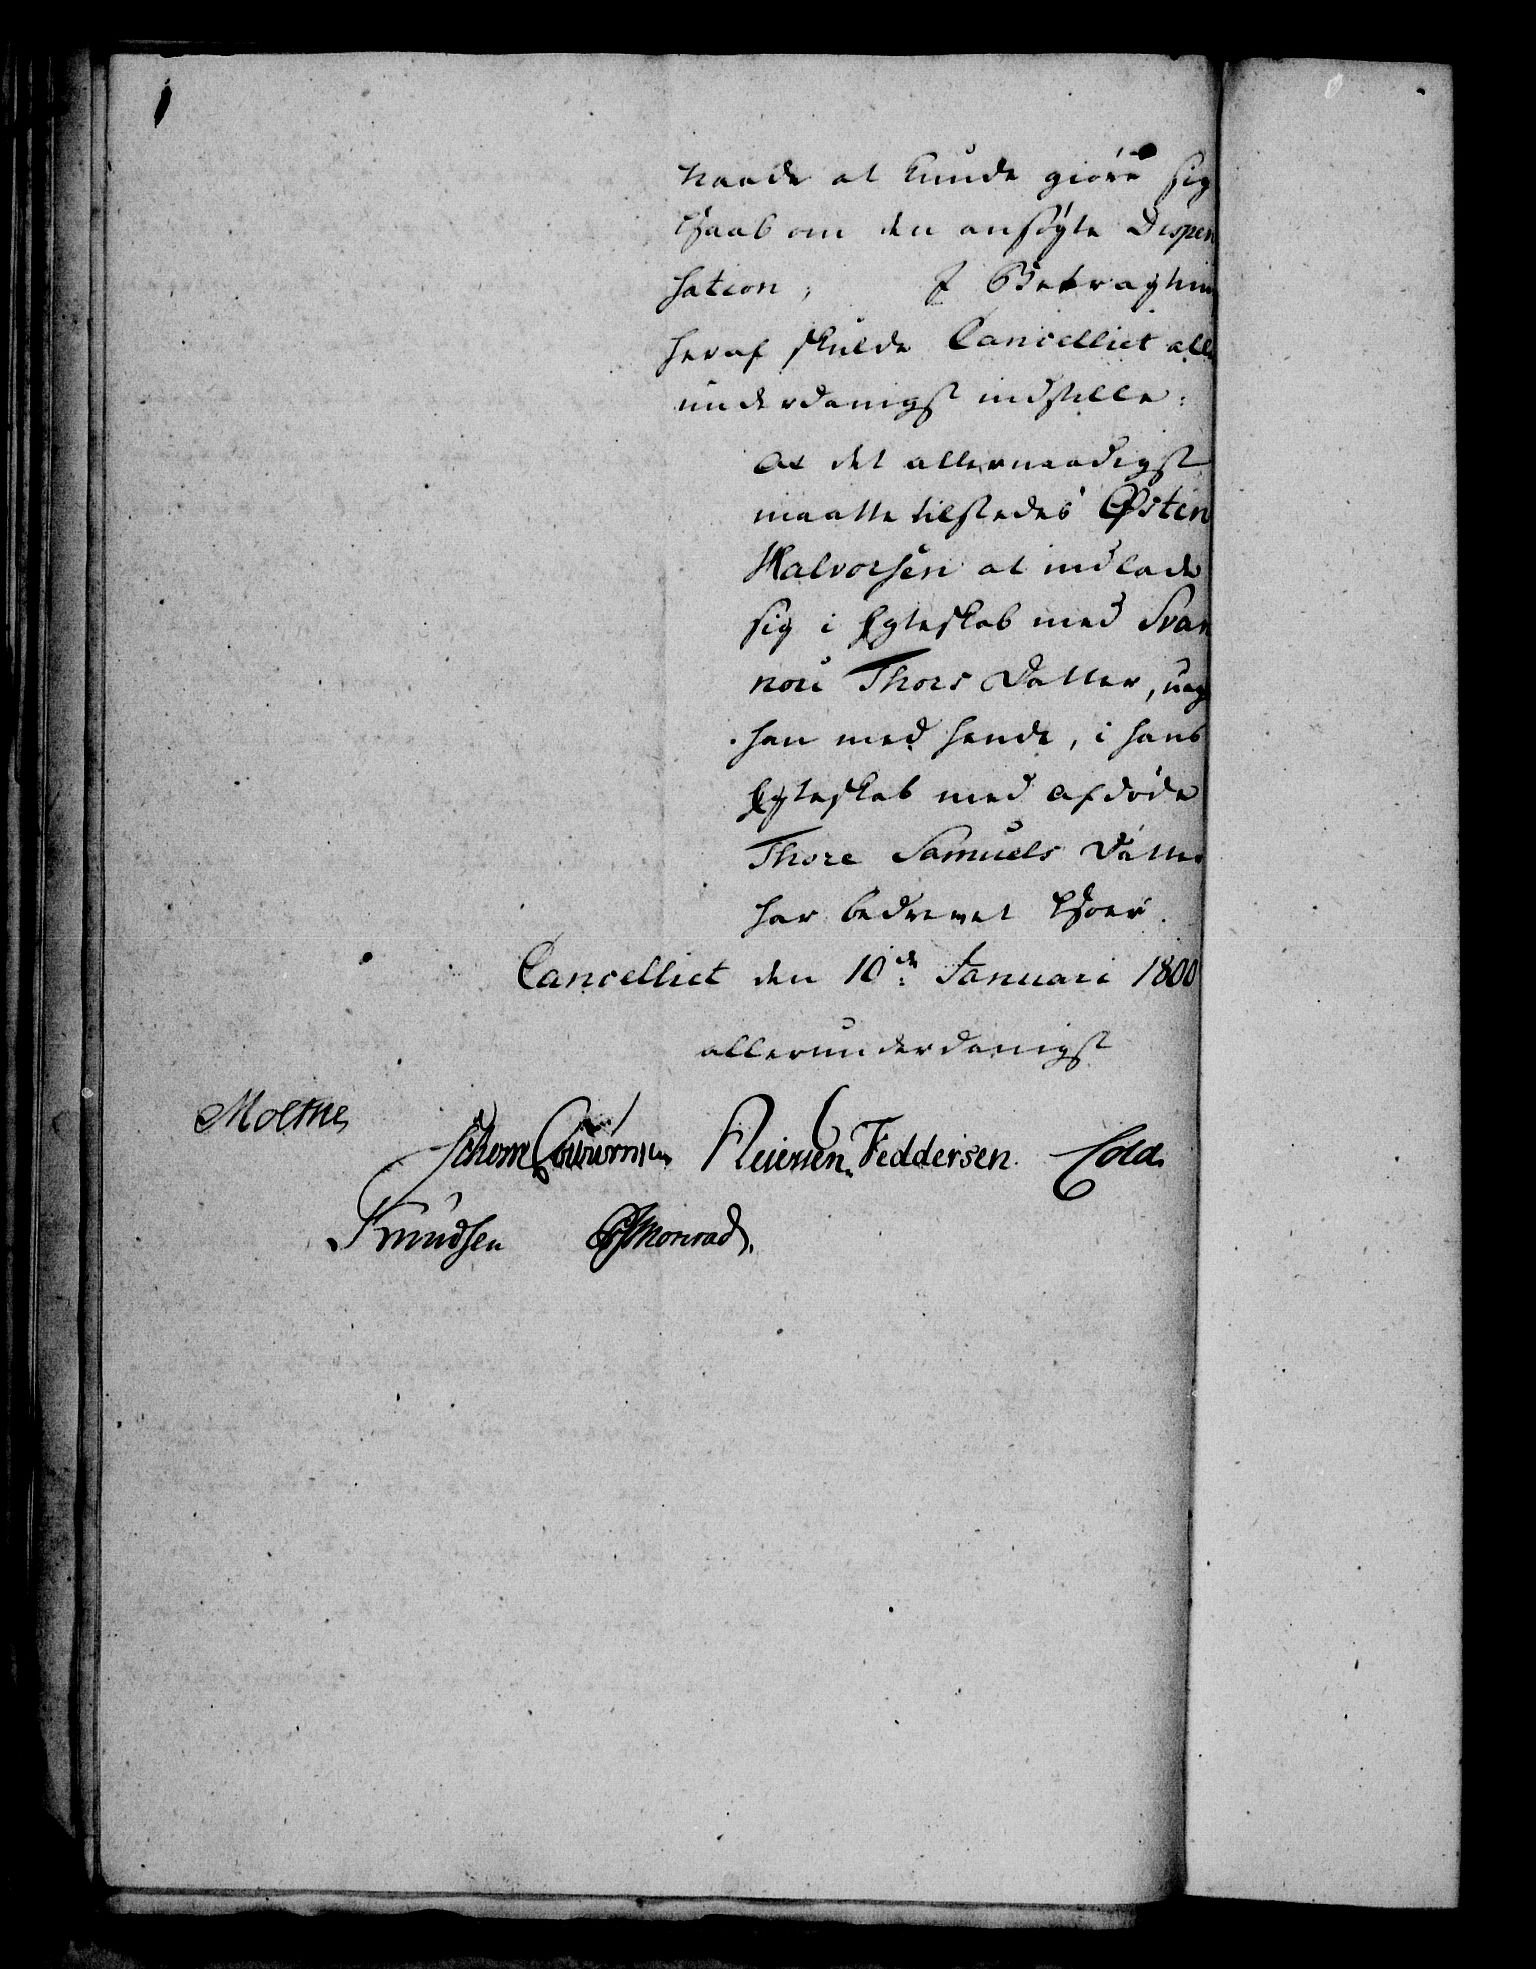 naade at kunde giöre sig
Haab om den ansøgte Dispen
sation; I Betragtnin
heraf skulde Cancelliet alle
underdanigst indstille:
At det allernaadigst
maatte tilstedes Østen
Halvorsen at indlade
sig i Egteskab med Svan
nou Thors Datter, uag
han med hende, i hans
Egteskab med afdöde
Thore Samuels Datter
har bedrevet Hoer.
Cancelliet den 10de Januari 1800
allerunderdanigst
Moltke
Schow Reiersen. Feddersen. Cold.
Knudsen Monrad.